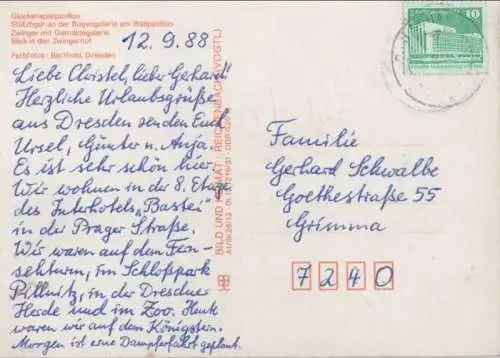 Glockenspielpavillon
Stützfigur an der Bogengalerie am Wallpavillon
Zwinger mit Gemäldegalerie
Blick in den Zwingerhof
Farbfotos: Barthold, Dresden
12.9.88
Liebe Christel, lieber Gerhard!
Herzliche Urlaubsgrüße
aus Dresden senden Euch
Ursel, Günter u. Anja.
Es ist sehr schön hier.
Wir wohnen in der 8. Etage
des Interhotels „Bastei"
in der Prager Straße.
Wir waren auf dem Fern-
sehturm, im Schloßpark
Pillnitz, in der Dresdner
Heide und im Zoo. Heut
waren wir auf dem Königstein.
Morgen ist eine Dampferfahrt geplant.
BILD UND HEIMAT REICHENBACH (VOGTL)
10
Familie
Gerhard Schwalbe
Goethestraße 55
Grimma
7240